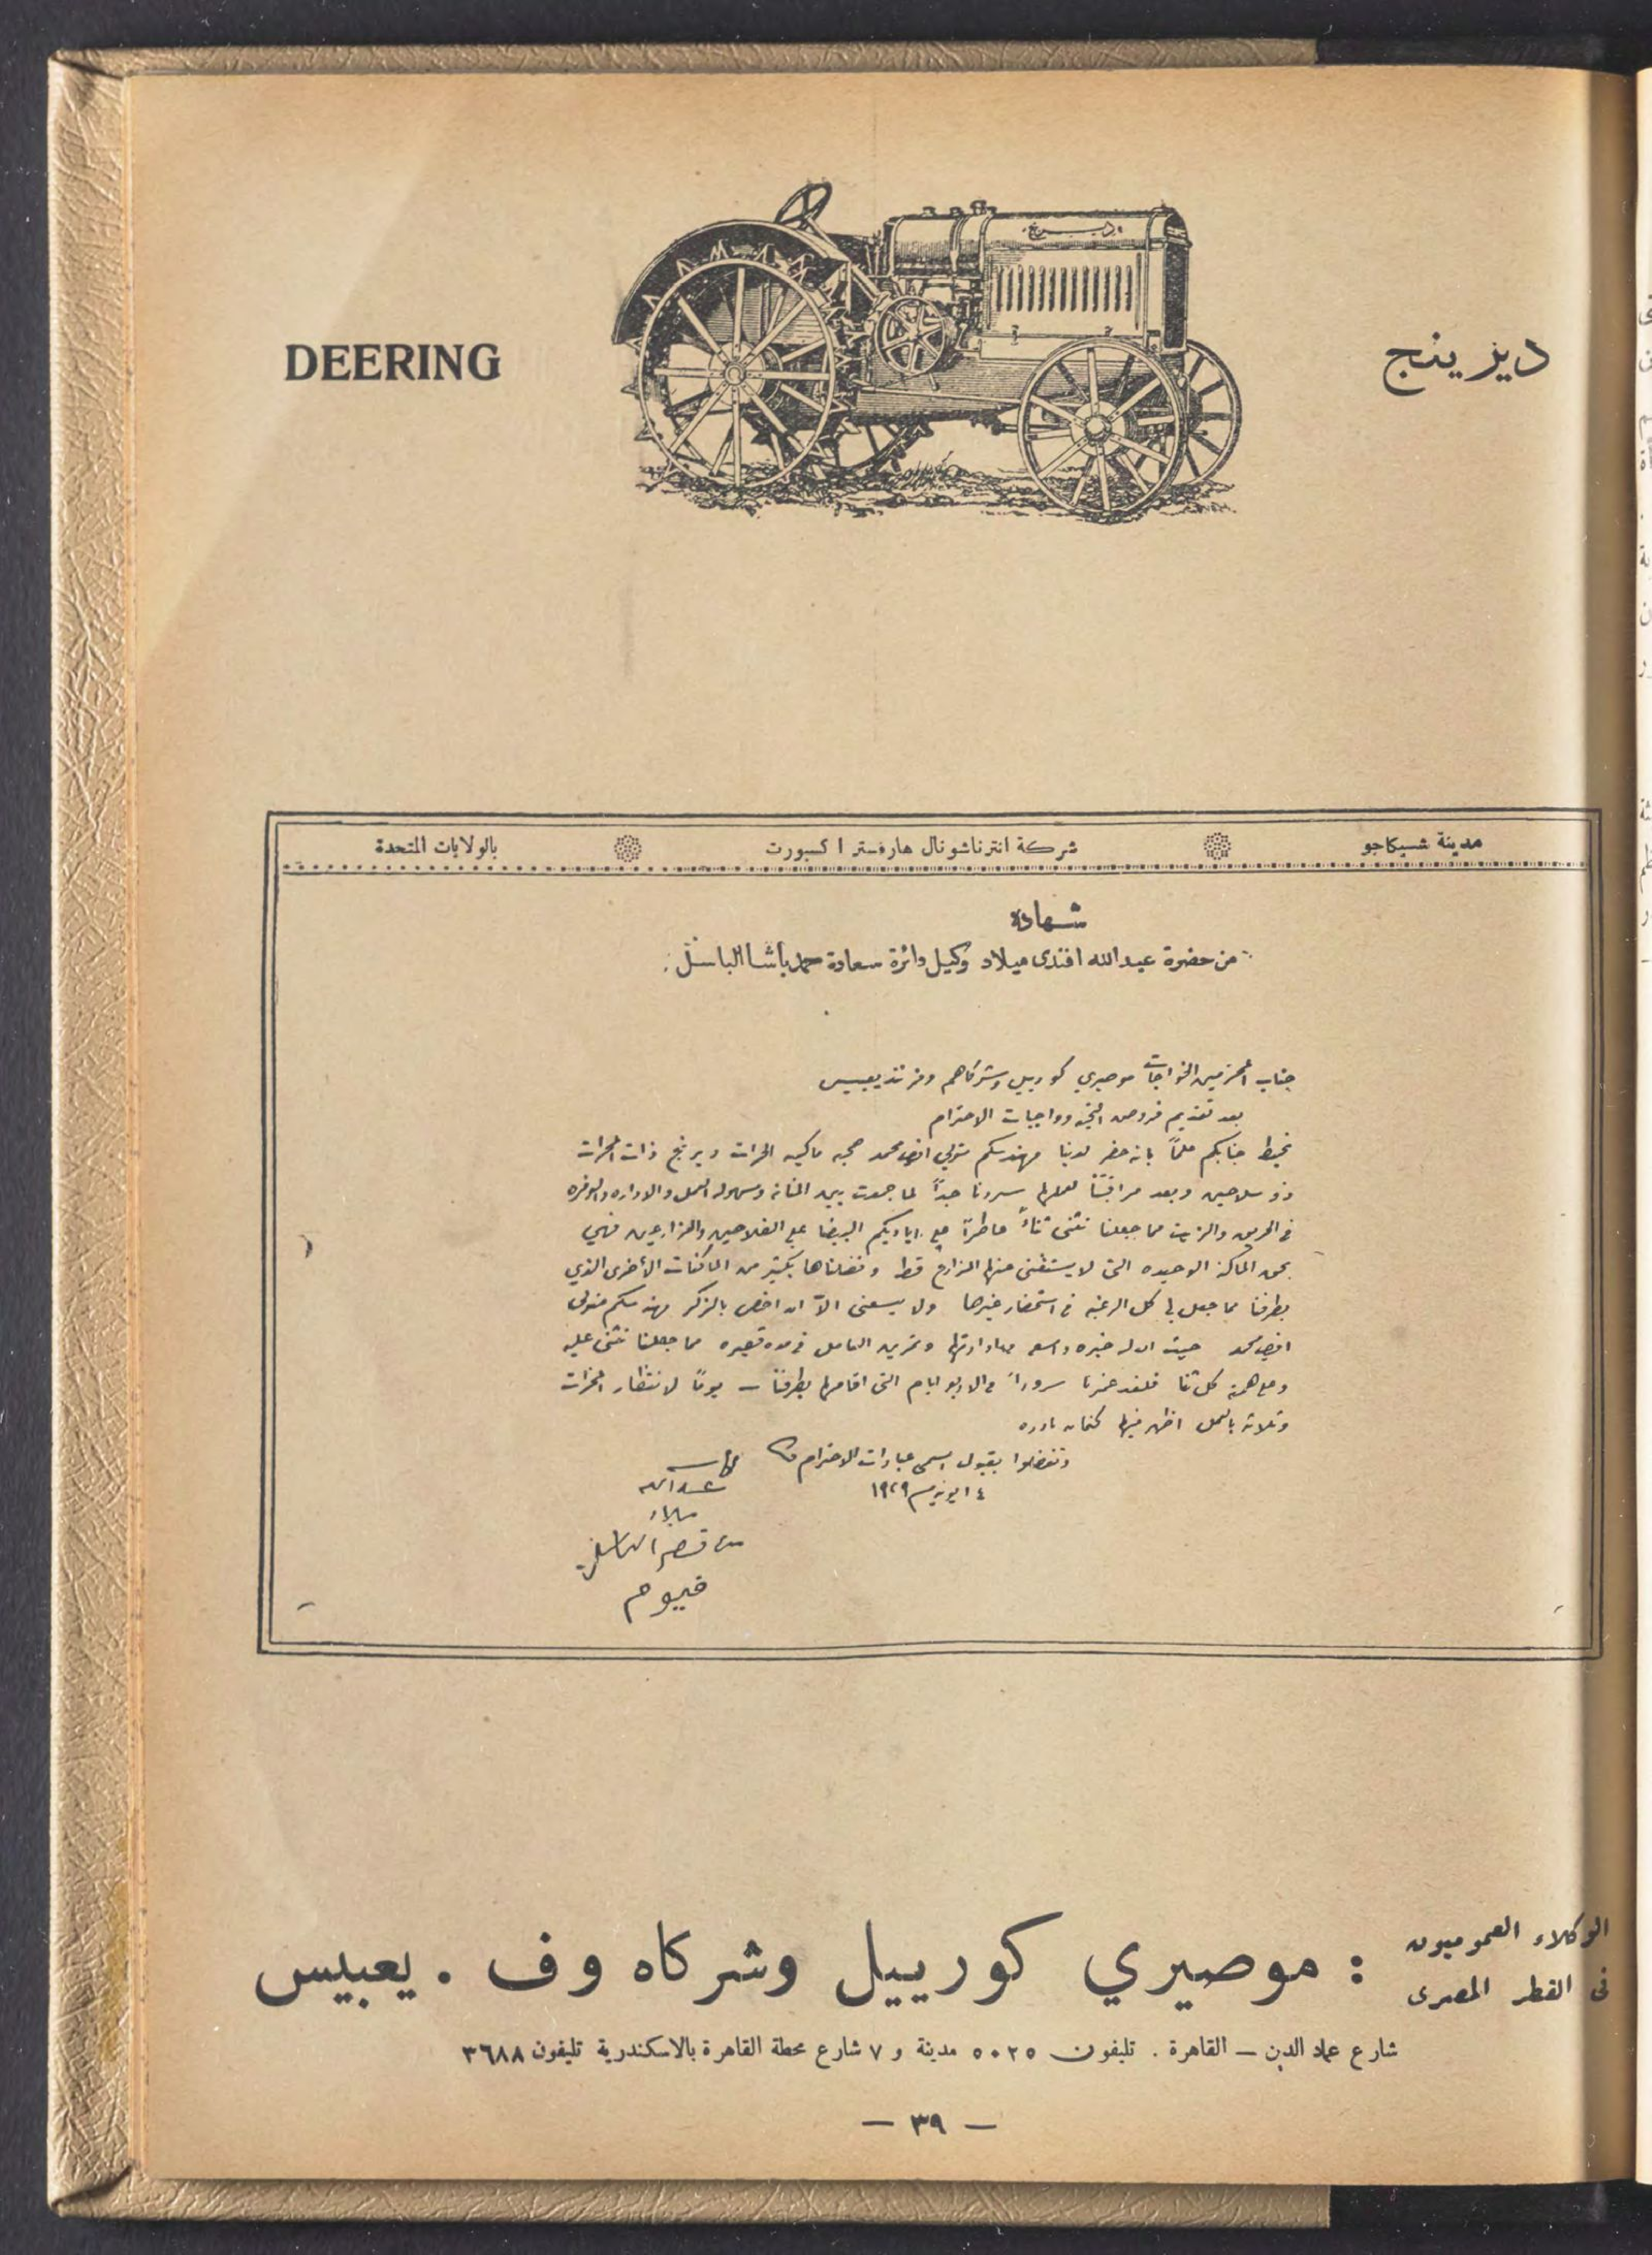 DEERING
ديرينج
ديرينج
مدينة شيكاجو
شركة انترناشونال هارفستر اكسبورت
بالولايات المتحدة
شهادة
من حضرة عبد الله افندى ميلاد وكيل دائرة سعادة حمد باشا الباسل
جناب المحترمين الخواجات موصيري كورييل وشركاهم وفرنند يعبيس
بعد تقديم فروض التحيه وواجبات الاحترام
نحيط جنابكم علماً بانه حضر لدينا مهندسكم متولي افندي محمد صحبة ماكينه الحراث ديرنج ذات المحراث
ذو سلاحين وبعد مراقبتنا لعملها سررنا جداً لما جمعت بين المتانه وسهولة العمل والاداره والوفره
فى الحريق والزيت مما جعلنا نثنى ثناءً عاطراً على اياديكم البيضا على الفلاحين والمزارعين فهي
بحق الماكنة الوحيده التى لا يستغنى عنها المزارع قط وفضلناها بكثير من الماكنات الأخرى الذي
بطرفنا مما جعل لي كل الرغبه فى استحضار غيرها ولا يسعنى الاّ ان اخص بالذكر مهندسكم متولى
افندي محمد حيث ان له خبره واسعه وتمرين العامل فى مدة قصيره مما جعلنا نثنى عليه
وعلى همته كل ثنا فلقد غمرنا سروراً فى الاربع ايام التى اقامها بطرفنا — يوماً لانتظار المحراث
وثلاثة بالعمل اظهر فيها كفاءة نادره
وتفضلوا بقبول اسمى عبارات الاحترام
١٤ يونيو سنة ١٩٢٩
عبدالله
ميلاد
قصر الباسل
فيوم
الوكلاء العموميون
فى القطر المصرى
: موصيري كورييل وشركاه وف . يعبيس
شارع عماد الدين — القاهرة . تليفون ٥٠٢٥ مدينة و ٧ شارع محطة القاهرة بالاسكندرية تليفون ٣٦٨٨
— ٣٩ —